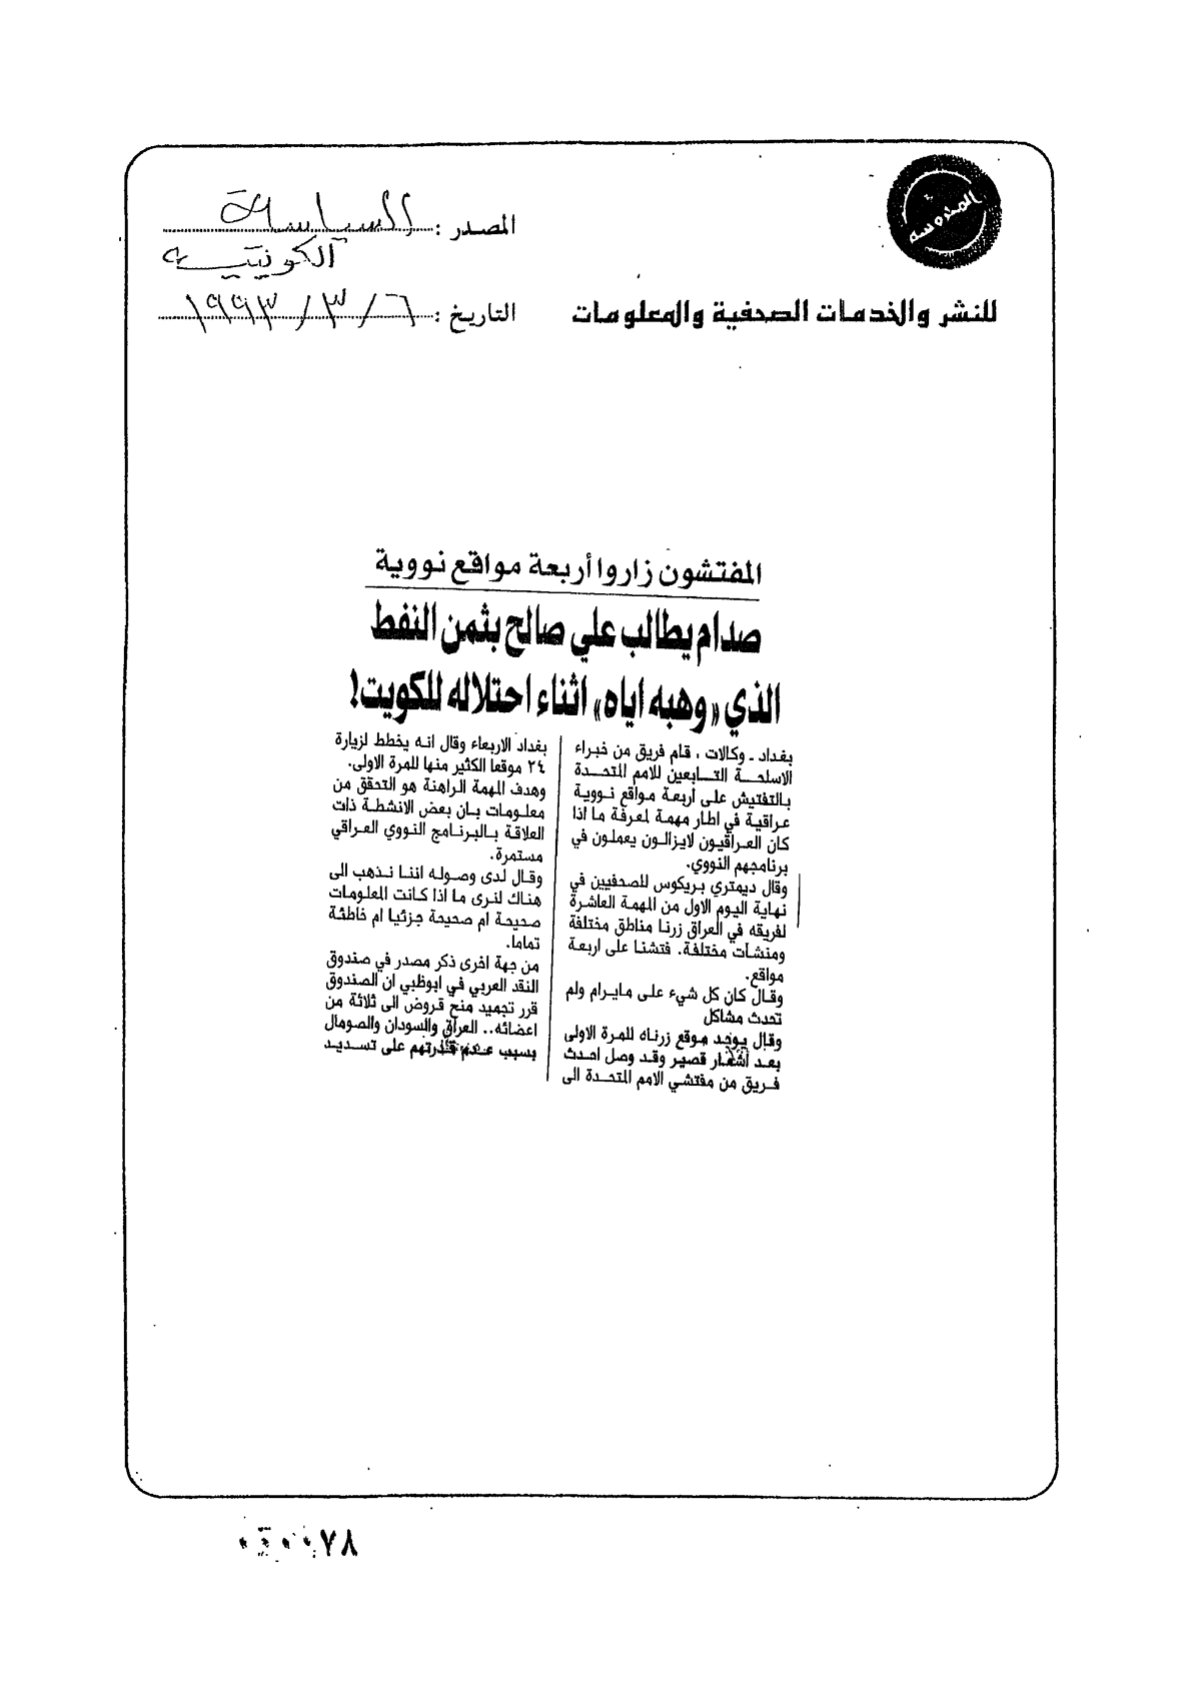 المدوسه
المصدر : السياسة
الكويتية
للنشر والخدمات الصحفية والمعلومات
التاريخ : ٦ / ٣ / ١٩٩٣
المفتشون زاروا أربعة مواقع نووية
صدام يطالب علي صالح بثمن النفط
الذي «وهبه اياه» اثناء احتلاله للكويت!
بغداد ـ وكالات ، قام فريق من خبراء
الاسلحة التابعين للامم المتحدة
بالتفتيش على اربعة مواقع نووية
عراقية في اطار مهمة لمعرفة ما اذا
كان العراقيون لايزالون يعملون في
برنامجهم النووي.
وقال ديمتري بريكوس للصحفيين في
نهاية اليوم الاول من المهمة العاشرة
لفريقه في العراق زرنا مناطق مختلفة
ومنشات مختلفة. فتشنا على اربعة
مواقع.
وقال كان كل شيء على مايرام ولم
تحدث مشاكل
وقال يوجد موقع زرناه للمرة الاولى
بعد اشعار قصير وقد وصل احدث
فريق من مفتشي الامم المتحدة الى
بغداد الاربعاء وقال انه يخطط لزيارة
٢٤ موقعا الكثير منها للمرة الاولى.
وهدف المهمة الراهنة هو التحقق من
معلومات بان بعض الانشطة ذات
العلاقة بالبرنامج النووي العراقي
مستمرة.
وقال لدى وصوله اننا نذهب الى
هناك لنرى ما اذا كانت المعلومات
صحيحة ام صحيحة جزئيا ام خاطئة
تماما.
من جهة اخرى ذكر مصدر في صندوق
النقد العربي في ابوظبي ان الصندوق
قرر تجميد منح قروض الى ثلاثة من
اعضائه.. العراق والسودان والصومال
بسبب عدم قدرتهم على تسديد
٧٨